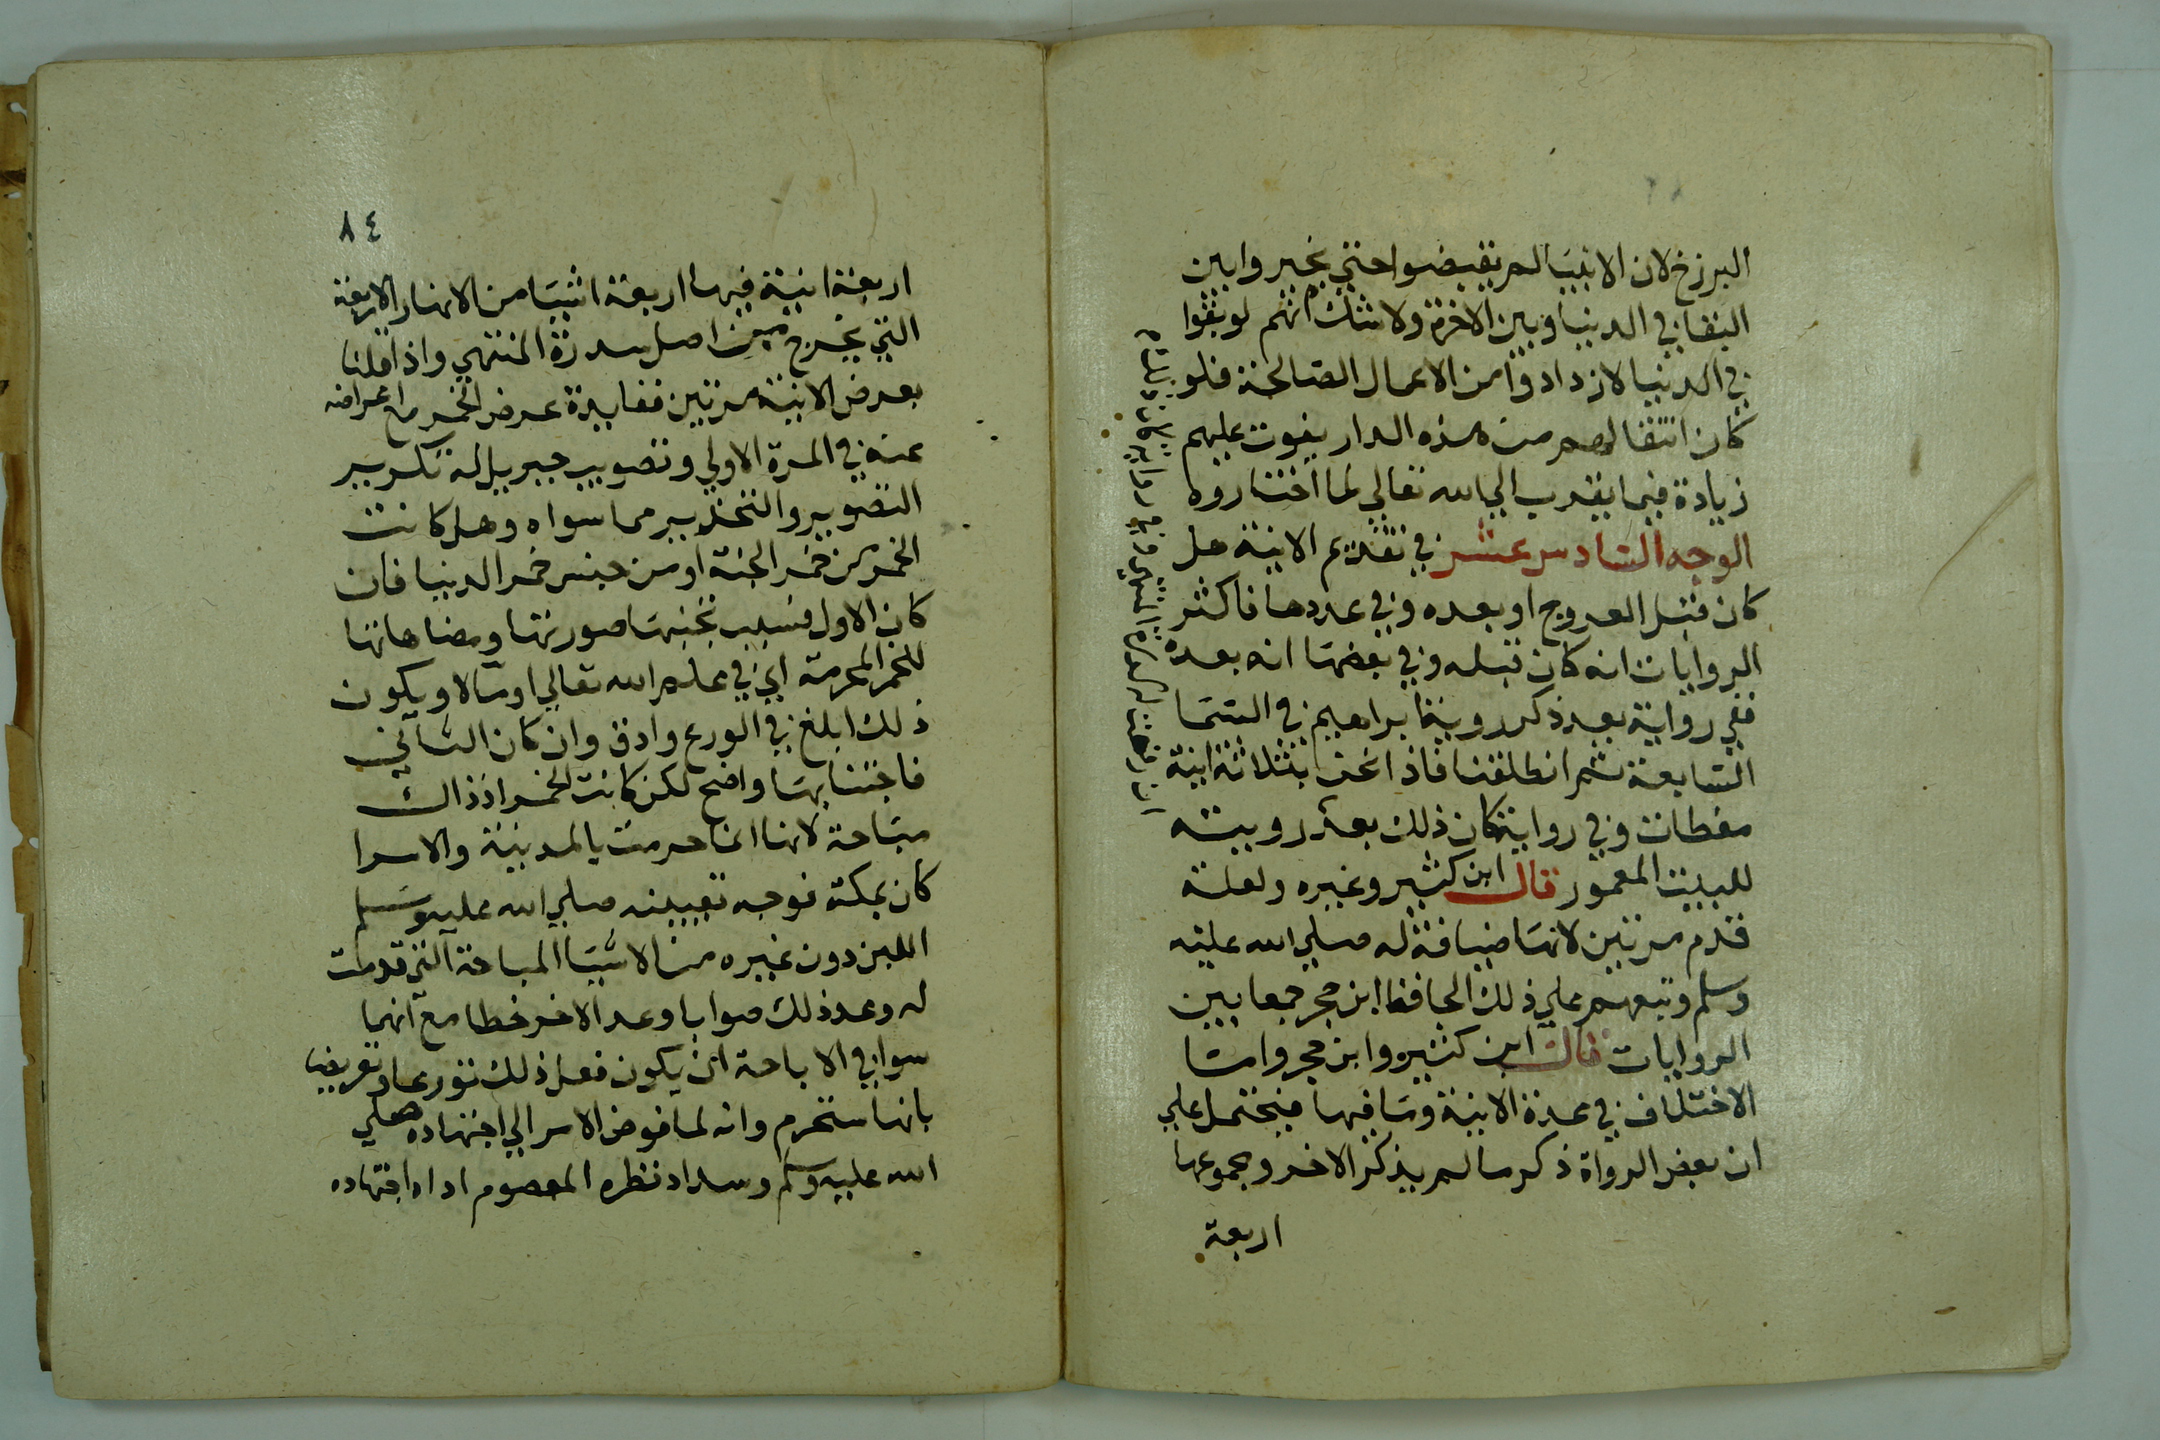 البرزخ لان الانبيا لم يقبضوا حتي يخيروا بين
البقا في الدنيا وبين الاخرة ولا شك انهم لو بقوا
في الدنيا لازدادوا من الاعمال الصالحة فلو
كان انتقالهم من هذه الدار يفوت عليهم
زيادة فيما يقرب الي الله تعالي لما اختاروه
الوجه السادس عشر في تقديم الانية هل
كان قبل العروج او بعده وفي عددها فاكثر
الروايات انه كان قبله وفي بعضها انه بعده
ففي رواية بعد ذكر روية ابراهيم في السما
السابعة ثم انطلقنا فاذا نحن بثلاثة انية
مغطات وفي رواية كان ذلك بعد رويته
للبيت المعمور قال ابن كثير وغيره ولعله
قدم مرتين لانها ضيافة له صلي الله عليه
وسلم وتبعهم علي ذلك الحافظ ابن حجر جمعا بين
الروايات قال ابن كثير وابن حجر واما
الاختلاف في عدة الانية وما فيها فيحتمل علي
ان بعض الرواة ذكر ما لم يذكر الاخر ومجموعها
اربعة
٨٤
اربعة انية فيها اربعة اشيا من الانهار الاربعة
التي تخرج من اصل سدرة المنتهي واذا قلنا
بعرض الانية مرتين ففايدة عرض الخمر مع اعراضه
عنه في المرة الاولي وتصويب جبريل له تكرير
التصوير والتحذير مما سواه وهل كانت
الخمر من خمر الجنة او من جنس خمر الدنيا فان
كان الاول فسبب تجنبها صورتها ومضاهاتها
للخمر المحرمة اي في علم الله تعالي اوما لا ويكون
ذلك ابلغ في الورع وادق وان كان الثاني
فاجتنابها واضح لكن كانت الخمر اذ ذاك
مباحة لانها انما حرمت بالمدينة والاسرا
كان بمكة فوجه تعيينه صلي الله عليه وسلم
اللبن دون غيره من الاشيا المباحة التي قدمت
له وعد ذلك صوابا وعد الاخر خطا مع انهما
سوا في الاباحة ان يكون فعل ذلك تورعا وتعريضا
بانها ستحرم وانه لما فوض الامر الي اجتهاده صلي
الله عليه وسلم وسداد نظره المعصوم اداه اجتهاده